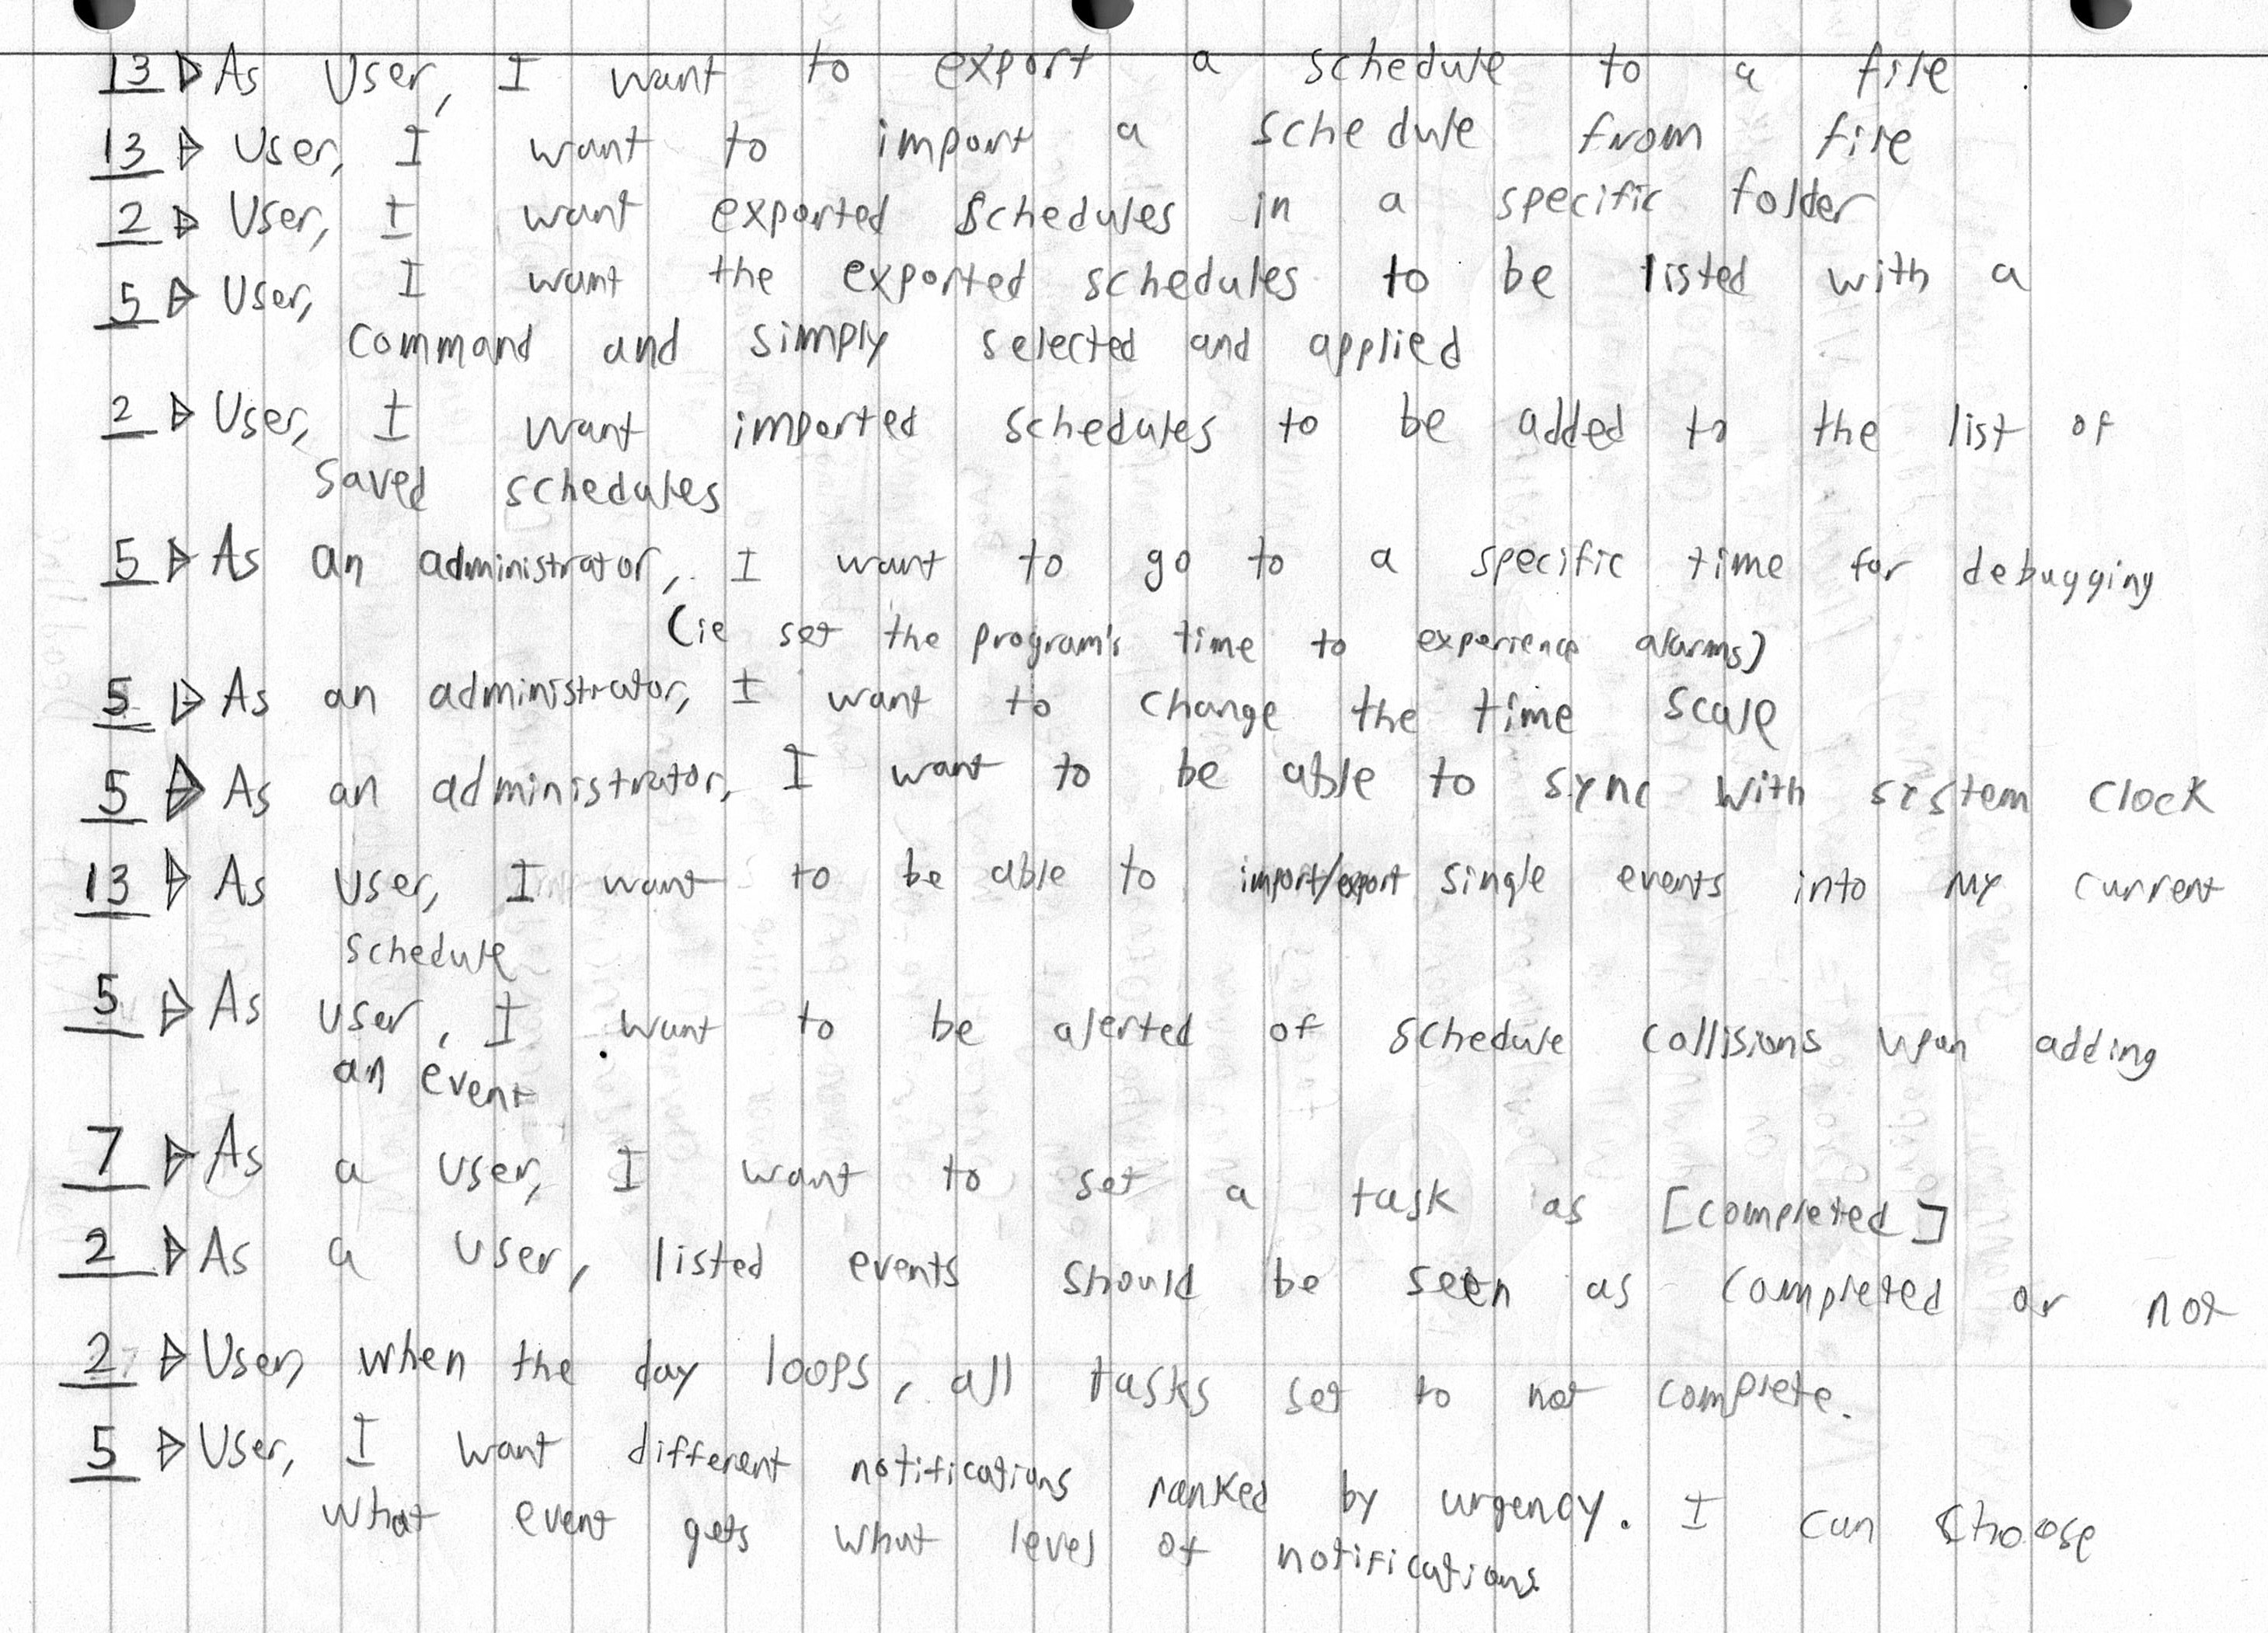 13 ▷ As User, I want to export a schedule to a file.
13 ▷ User, I want to import a schedule from file
2 ▷ User, I want exported schedules in a specific folder
5 ▷ User, I want the exported schedules to be listed with a
command and simply selected and applied
2 ▷ User, I want imported schedules to be added to the list of
saved schedules
5 ▷ As an administrator, I want to go to a specific time for debugging
(ie set the program's time to experience alarms)
5 ▷ As an administrator, I want to change the time scale
5 ▷ As an administrator, I want to be able to sync with system clock
13 ▷ As user, I want to be able to import/export single events into my current
schedule
5 ▷ As user, I want to be alerted of schedule collisions upon adding
an event
7 ▷ As a user, I want to set a task as [completed]
2 ▷ As a user, listed events should be seen as completed or not
2 ▷ User, when the day loops, all tasks set to not complete.
5 ▷ User, I want different notifications ranked by urgency. I can choose
what event gets what level of notifications